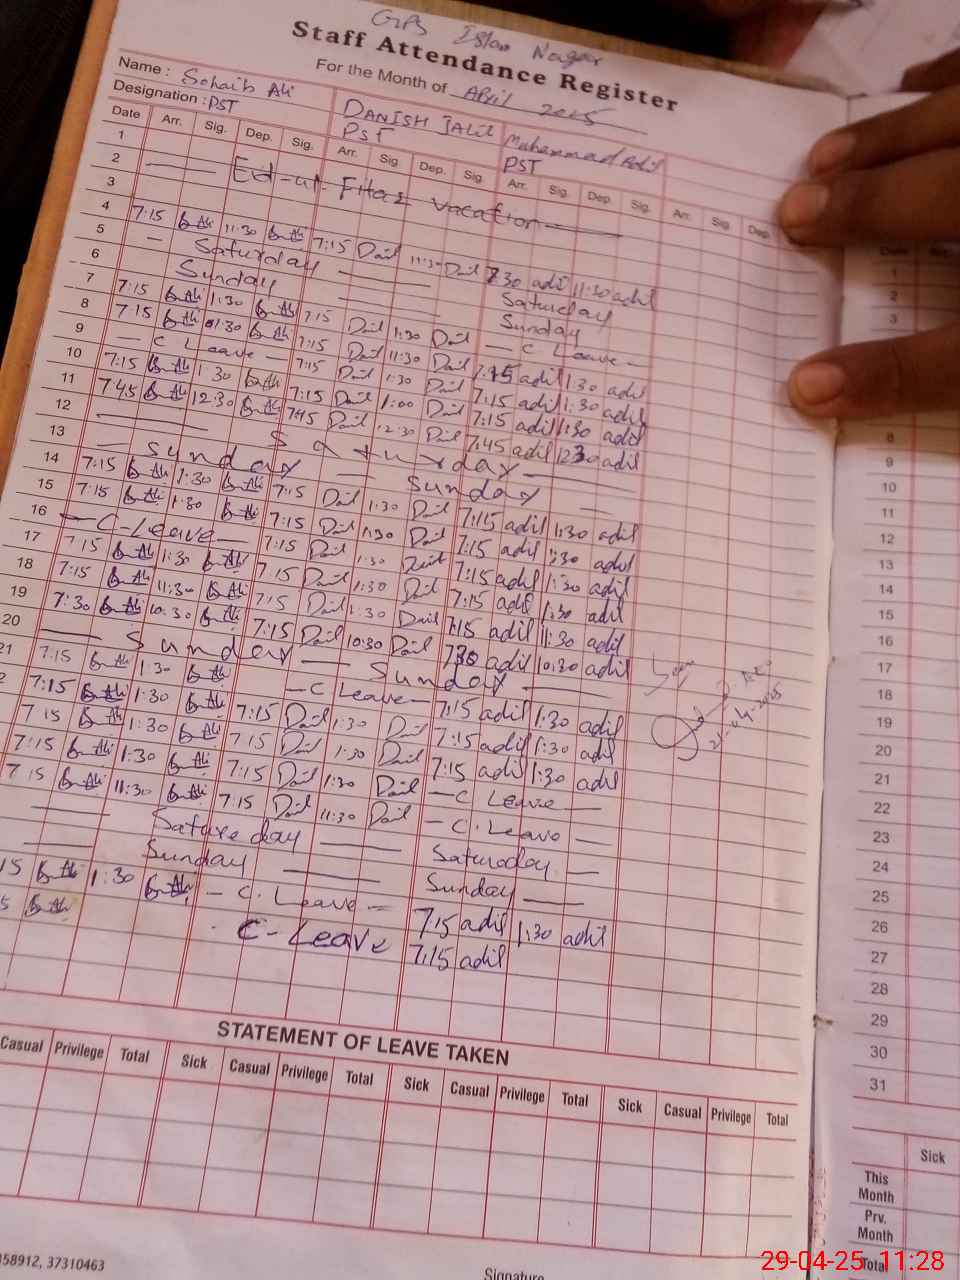 GPS Islam Nagar
Staff Attendance Register
For the Month of April 2025
Name: Sohaib Ali DANISH JALIL Muhammad Adil
Designation: PST PST PST
Date Arr. Sig. Dep. Sig. Arr. Sig. Dep. Sig. Arr. Sig. Dep. Sig. Arr. Sig. Dep.
1
2 Eid-ul-Fitar vacation
3
4 7:15 Ali 11:30 Ali 7:15 Danil 11:30 Danil 7:30 adil 11:30 adil
5 Saturday Saturday
6 Sunday Sunday
7 7:15 Ali 1:30 Ali 7:15 Danil 1:30 Danil - C Leave -
8 7:15 Ali 1:30 Ali 7:15 Danil 11:30 Danil 7:15 adil 1:30 adil
9 - C Leave - 7:15 Danil 1:30 Danil 7:15 adil 1:30 adil
10 7:15 Ali 1:30 Ali 7:15 Danil 1:00 Danil 7:15 adil 1:30 adil
11 7:45 Ali 12:30 Ali 7:45 Danil 12:30 Danil 7:45 adil 1230 adil
12 Saturday
13 Sunday Sunday
14 7:15 Ali 1:30 Ali 7:15 Danil 1:30 Danil 7:15 adil 1:30 adil
15 7:15 Ali 1:30 Ali 7:15 Danil 1:30 Danil 7:15 adil 1:30 adil
16 - C-Leave - 7:15 Danil 1:30 Danil 7:15 adil 1:30 adil
17 7:15 Ali 1:30 Ali 7:15 Danil 1:30 Danil 7:15 adil 1:30 adil
18 7:15 Ali 11:30 Ali 7:15 Danil 1:30 Danil 7:15 adil 11:30 adil
19 7:30 Ali 10:30 Ali 7:15 Danil 10:30 Danil 730 adil 10:30 adil
20 Sunday Sunday
21 7:15 Ali 1:30 Ali - C Leave - 7:15 adil 1:30 adil
2 7:15 Ali 1:30 Ali 7:15 Danil 1:30 Danil 7:15 adil 1:30 adil
7:15 Ali 1:30 Ali 7:15 Danil 1:30 Danil 7:15 adil 1:30 adil
7:15 Ali 1:30 Ali 7:15 Danil 1:30 Danil - C Leave -
7:15 Ali 11:30 Ali 7:15 Danil 11:30 Danil - C. Leave -
Satureday Saturoday
Sunday Sunday
15 Ali 1:30 Ali - C. Leave - 7:15 adil 1:30 adil
5 Ali C-Leave 7:15 adil
21-04-2025
STATEMENT OF LEAVE TAKEN
Casual Privilege Total Sick Casual Privilege Total Sick Casual Privilege Total Sick Casual Privilege Total
358912, 37310463
Signature
1
2
3
8
9
10
11
12
13
14
15
16
17
18
19
20
21
22
23
24
25
26
27
28
29
30
31
Sick
This Month
Prv. Month
Total
29-04-25 11:28